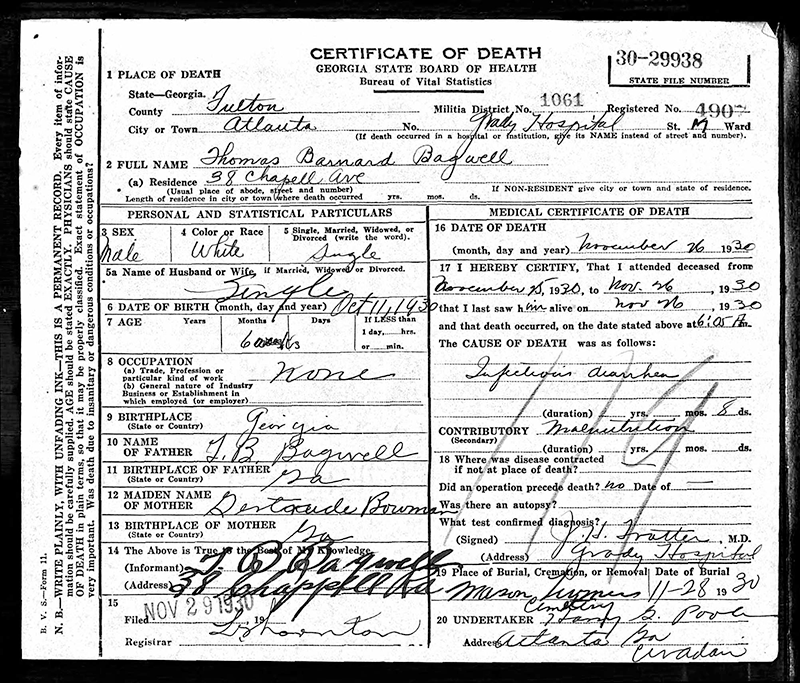 CERTIFICATE OF DEATH
GEORGIA STATE BOARD OF HEALTH
Bureau of Vital Statistics
30-29938
STATE FILE NUMBER
1 PLACE OF DEATH
State—Georgia.
County Fulton Militia District No. 1061 Registered No. 4907
City or Town Atlanta No. Grady Hospital St. Ward
(If death occurred in a hospital or institution, give its NAME instead of street and number).
2 FULL NAME Thomas Barnard Bagwell
(a) Residence 38 Chapell Ave
(Usual place of abode, street and number) If NON-RESIDENT give city or town and state of residence.
Length of residence in city or town where death occurred yrs. mos. ds.
PERSONAL AND STATISTICAL PARTICULARS
3 SEX Male
4 Color or Race White
5 Single, Married, Widowed, or Divorced (write the word). Single
5a Name of Husband or Wife, if Married, Widowed or Divorced.
Single
6 DATE OF BIRTH (month, day and year) Oct 11, 1930
7 AGE Years Months Days If LESS than
1 day,.....hrs.
or.....min.
6
8 OCCUPATION
(a) Trade, Profession or particular kind of work
(b) General nature of Industry Business or Establishment in which employed (or employer)
None
9 BIRTHPLACE Georgia
(State or Country)
10 NAME OF FATHER T. B. Bagwell
11 BIRTHPLACE OF FATHER Ga
(State or Country)
12 MAIDEN NAME OF MOTHER Gertrude Bowman
13 BIRTHPLACE OF MOTHER Ga
(State or Country)
14 The Above is True to the Best of My Knowledge.
(Informant) T B Bagwell
(Address) 38 Chappell Rd
15 NOV 29 1930
Filed 19
Registrar
MEDICAL CERTIFICATE OF DEATH
16 DATE OF DEATH
(month, day and year) November 26 1930
17 I HEREBY CERTIFY, That I attended deceased from
November 25, 1930, to Nov. 26, 1930
that I last saw him alive on Nov 26, 1930
and that death occurred, on the date stated above at 6:05 A.
The CAUSE OF DEATH was as follows:
Infectious diarrhea
(duration) yrs. mos. 8 ds.
CONTRIBUTORY Malnutrition
(Secondary)
(duration) yrs. mos. ds.
119
18 Where was disease contracted
if not at place of death?
Did an operation precede death? no Date of —
Was there an autopsy?
What test confirmed diagnosis?
(Signed) Trotter, M.D.
(Address) Grady Hospital
19 Place of Burial, Cremation, or Removal Date of Burial
Mason Cemetery 11-28 1930
20 UNDERTAKER Harry G. Poole
Address Atlanta Ga
B. V. S.—Form 11.
N. B.—WRITE PLAINLY, WITH UNFADING INK—THIS IS A PERMANENT RECORD. Every item of information should be carefully supplied. AGE should be stated EXACTLY. PHYSICIANS should state CAUSE OF DEATH in plain terms, so that it may be properly classified. Exact statement of OCCUPATION is very important. Was death due to insanitary or dangerous conditions or occupations?